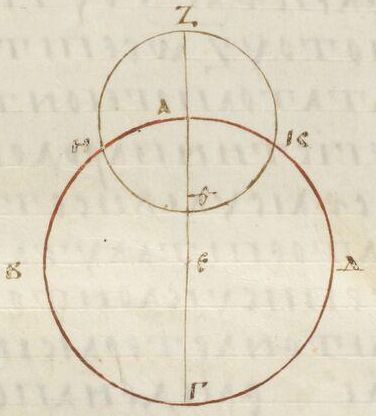 Ζ
Α
Η Κ
Θ
Β Ε Δ
Γ